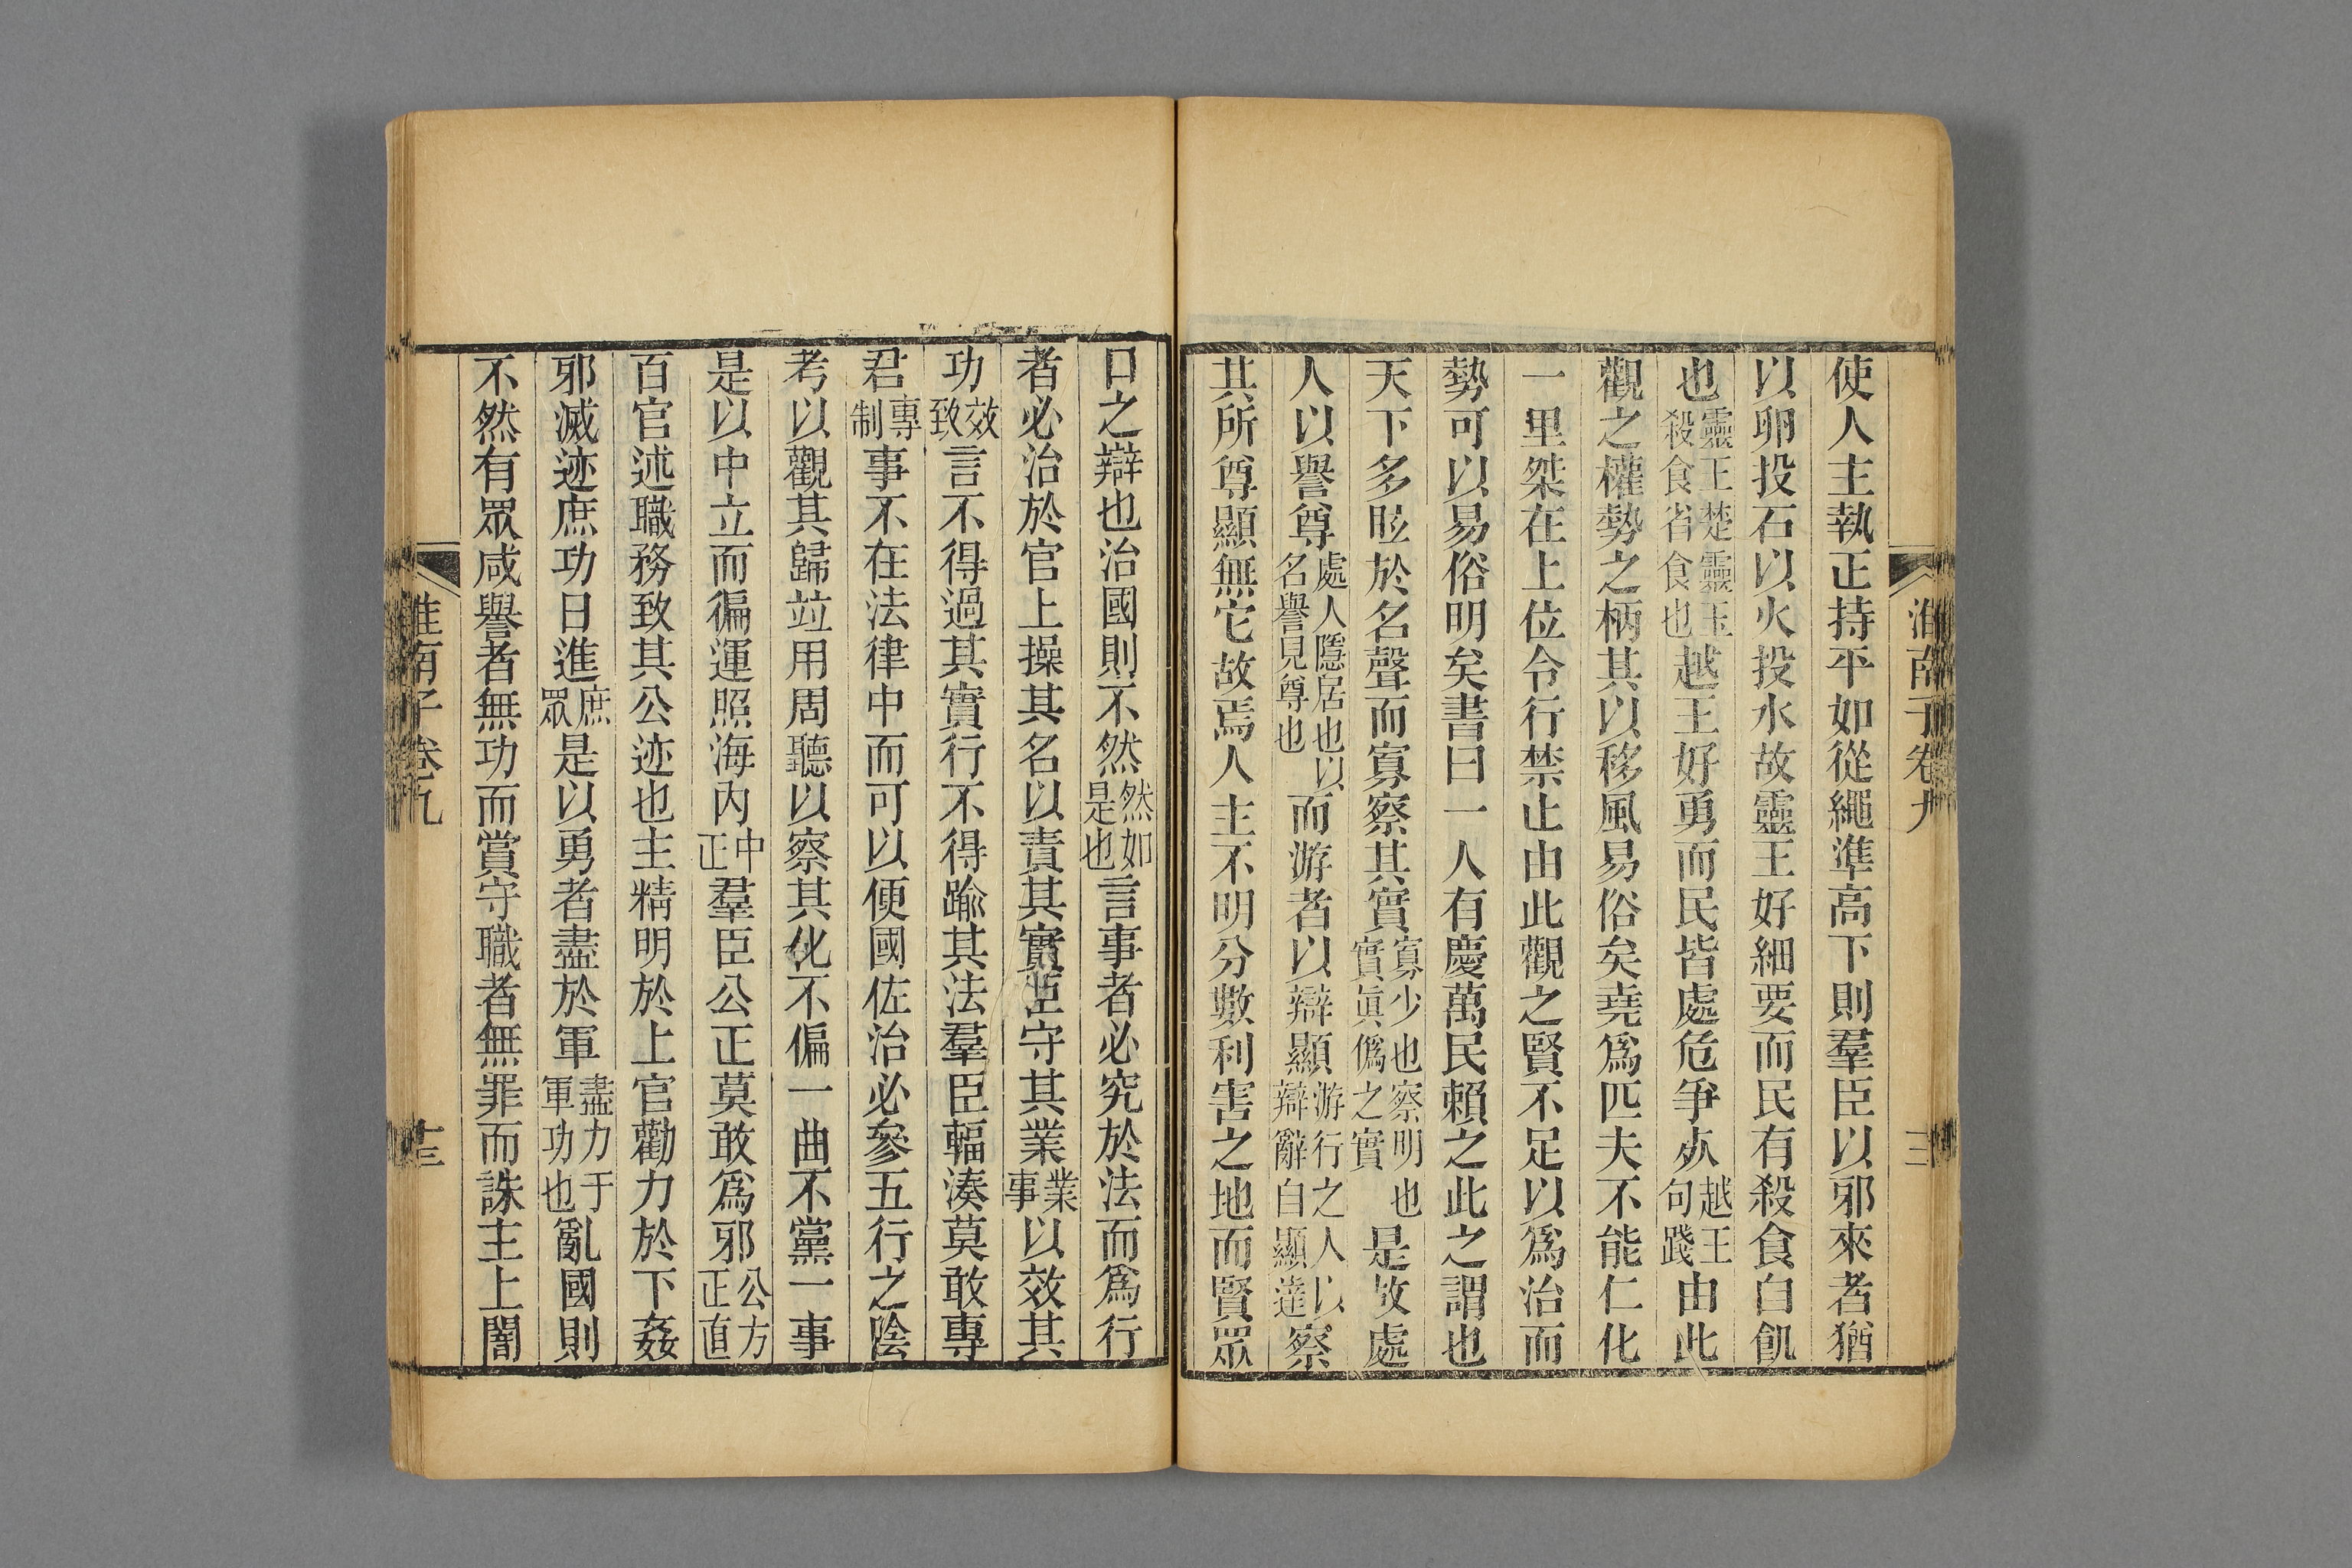 淮南子卷九
三
使人主執正持平如從繩準高下則羣臣以邪來者猶
以卵投石以火投水故靈王好細要而民有殺食自飢
也靈王楚靈王殺食省食也越王好勇而民皆處危爭死越王句踐由此
觀之權勢之柄其以移風易俗矣堯爲匹夫不能仁化
一里桀在上位令行禁止由此觀之賢不足以爲治而
勢可以易俗明矣書曰一人有慶萬民賴之此之謂也
天下多眩於名聲而寡察其實寡少也察明也實眞僞之實是故處
人以譽尊處人隱居也以名譽見尊也而游者以辯顯游行之人以辯辭自顯達察
其所尊顯無它故焉人主不明分數利害之地而賢眾
口之辯也治國則不然然如是也言事者必究於法而爲行
者必治於官上操其名以責其實臣守其業業事以效其
功效致言不得過其實行不得踰其法羣臣輻湊莫敢專
君專制事不在法律中而可以便國佐治必參五行之陰
考以觀其歸竝用周聽以察其化不偏一曲不黨一事
是以中立而徧運照海內中正羣臣公正莫敢爲邪公方正直
百官述職務致其公迹也主精明於上官勸力於下姦
邪滅迹庶功日進庶眾是以勇者盡於軍盡力于軍功也亂國則
不然有眾咸譽者無功而賞守職者無罪而誅主上闇
淮南子卷九
十三